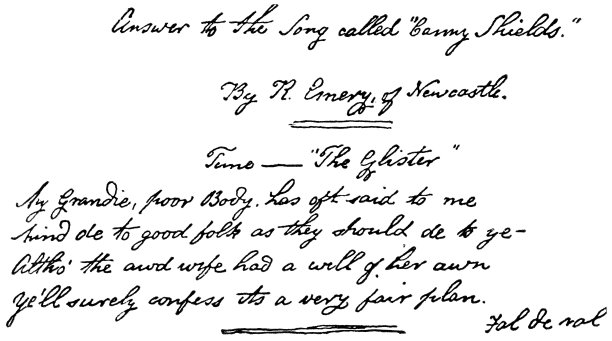 Answer to the Song called "Canny Shields."
By R. Emery, of Newcastle.
Tune — "The Glister"
My Grandie, poor Body, has oft said to me
Mind de to good folk as they should de to ye –
Altho' the awd wife had a will of her awn
Ye'll surely confess its a very fair plan.
Fal de ral